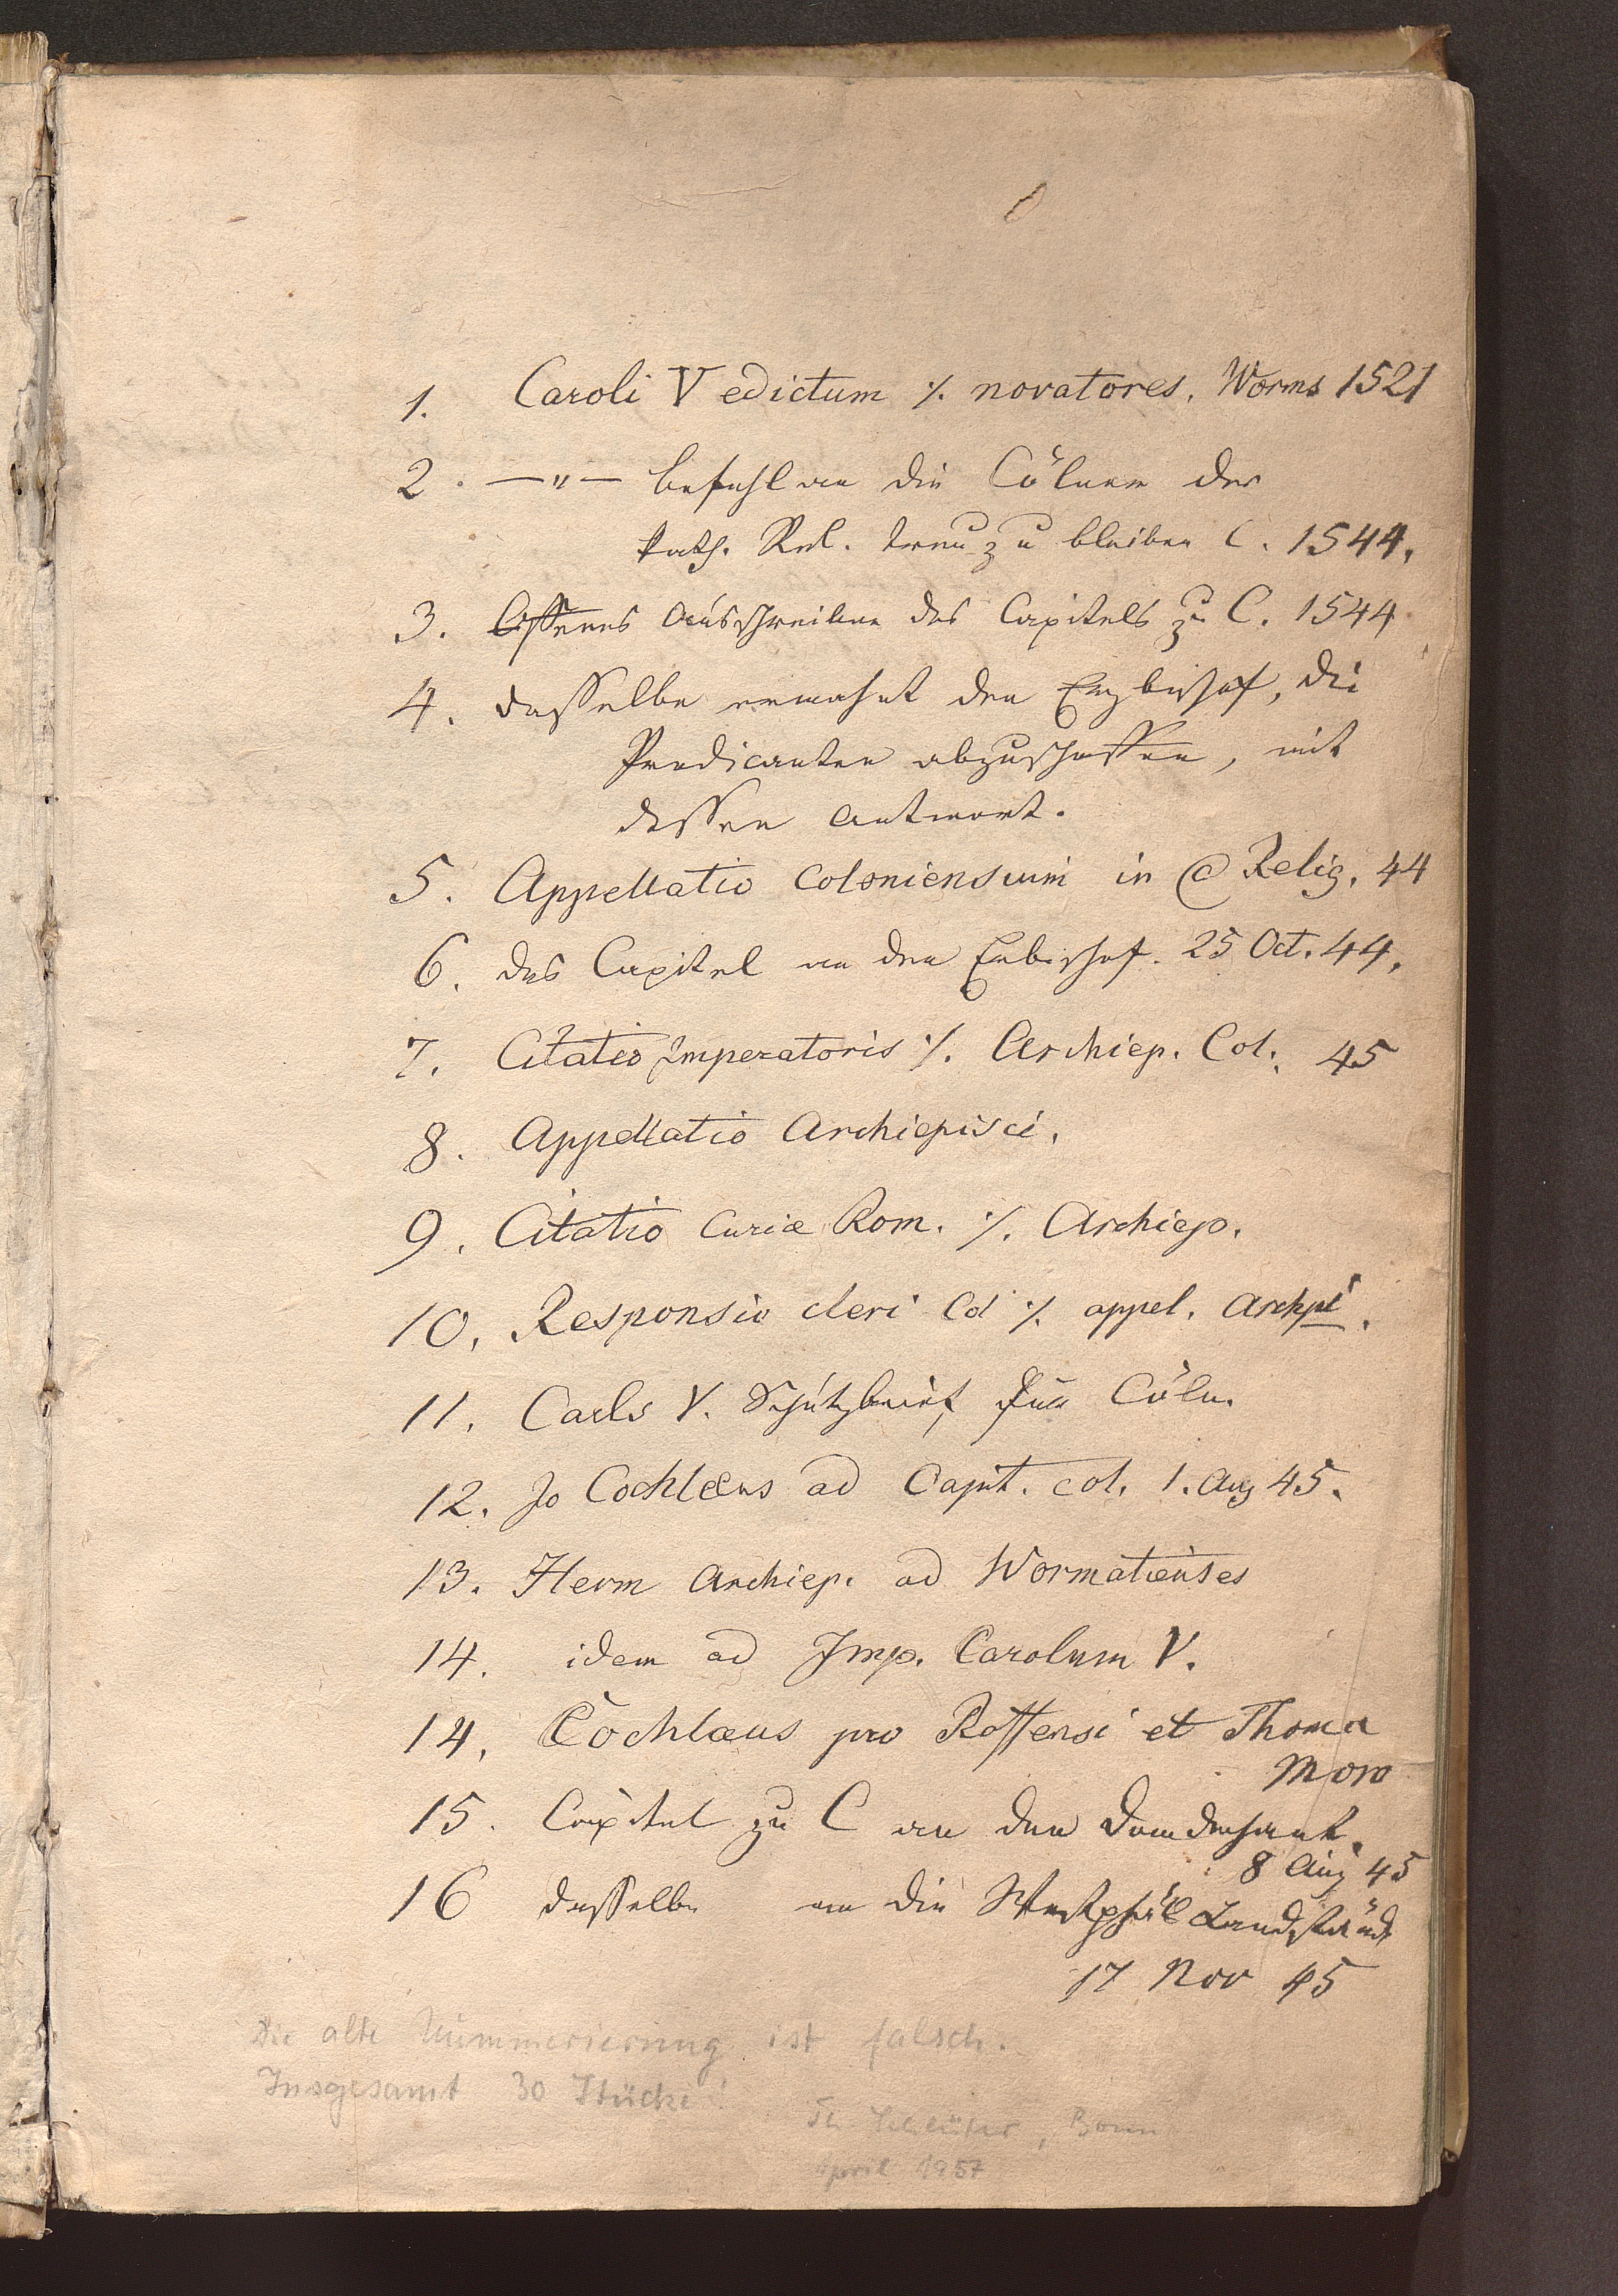 1. Caroli V edictum ./. novatores. Worms 1521
2. —„— befehl an die Cölner der
kath. Rel. treu zu bleiben C. 1544.
3. Offenes Ausschreiben des Capitels zu C. 1544
4. dasselbe ermahnt den Erzbischof, die
Predicanten abzuschaffen, mit
dessen Antwort.
5. Appellatio Coloniensium in @ Relig. 44
6. das Capitel an den Erbischof. 25 Oct. 44.
7. Citatio Imperatoris ./. Archiep. Col. 45
8. Appellatio Archiepisci.
9. Citatio Curiæ Rom. ./. Archiep.
10. Responsio cleri Col ./. appel. Archpi.
11. Carls V. Schutzbrief für Cöln.
12. Jo Cochlæus ad Capit. col. 1. Aug 45.
13. Herm Archiep. ad Wormatienses
14. idem ad Imp. Carolum V.
14. Cochlæus pro Roffensi et Thoma
Moro
15. Capitel zu C an den Domdechant.
8 Aug 45
16 dasselbe an die Westphäl Landstände
17 Nov 45
Die alte Nummerierung ist falsch.
Insgesamt 30 Stücke!
Th Schlüter, Bonn
April 1957